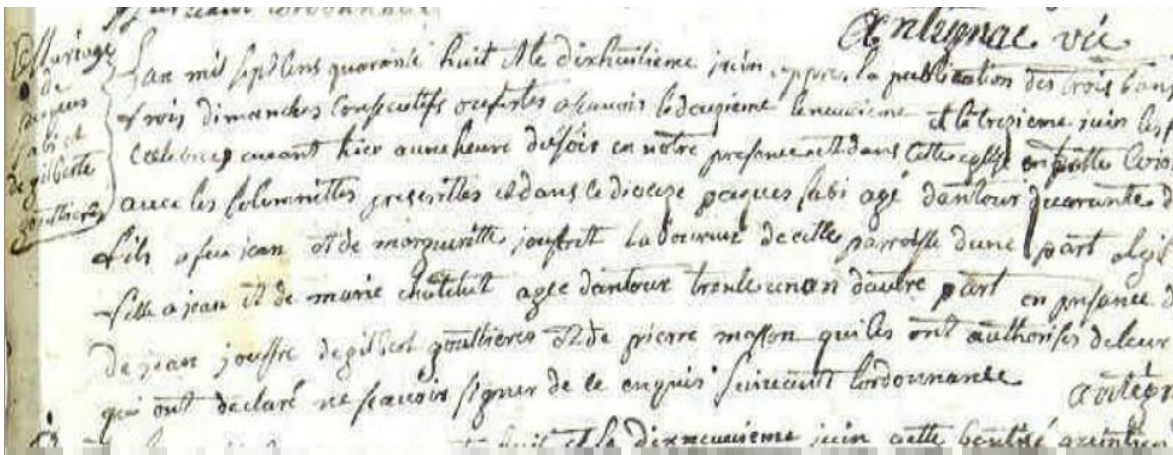 suivant lordonnance
antignac vic
Mariage
de
jacques
fabi et
de gilberte
gouttieres
Lan mil sept cens quarante huit et le dixhuitieme juin, appres la publication des trois bans
trois dimanches consecutifs ou festes a scavoir le deuzieme le neuvieme et le trezieme juin les
celebrees avant hier a une heure du soir en nôtre presence et dans cette eglise
avec les solemnittes prescrittes et dans ce dioceze jaques fabi agé dantour quarante
fils a feu jean et de margueritte jouffrett laboureur de cette parroisse dune part
fille a jean et de marie chatelut agee dantour trente un an dautre part en presance
de jean jouffre de gilbert gouttieres et de pierre masson qui les ont authorisés de leur
qui ont declaré ne scavoir signer de ce enquis suivant lordonnance
huit et le dixneuvieme juin a este baptisé